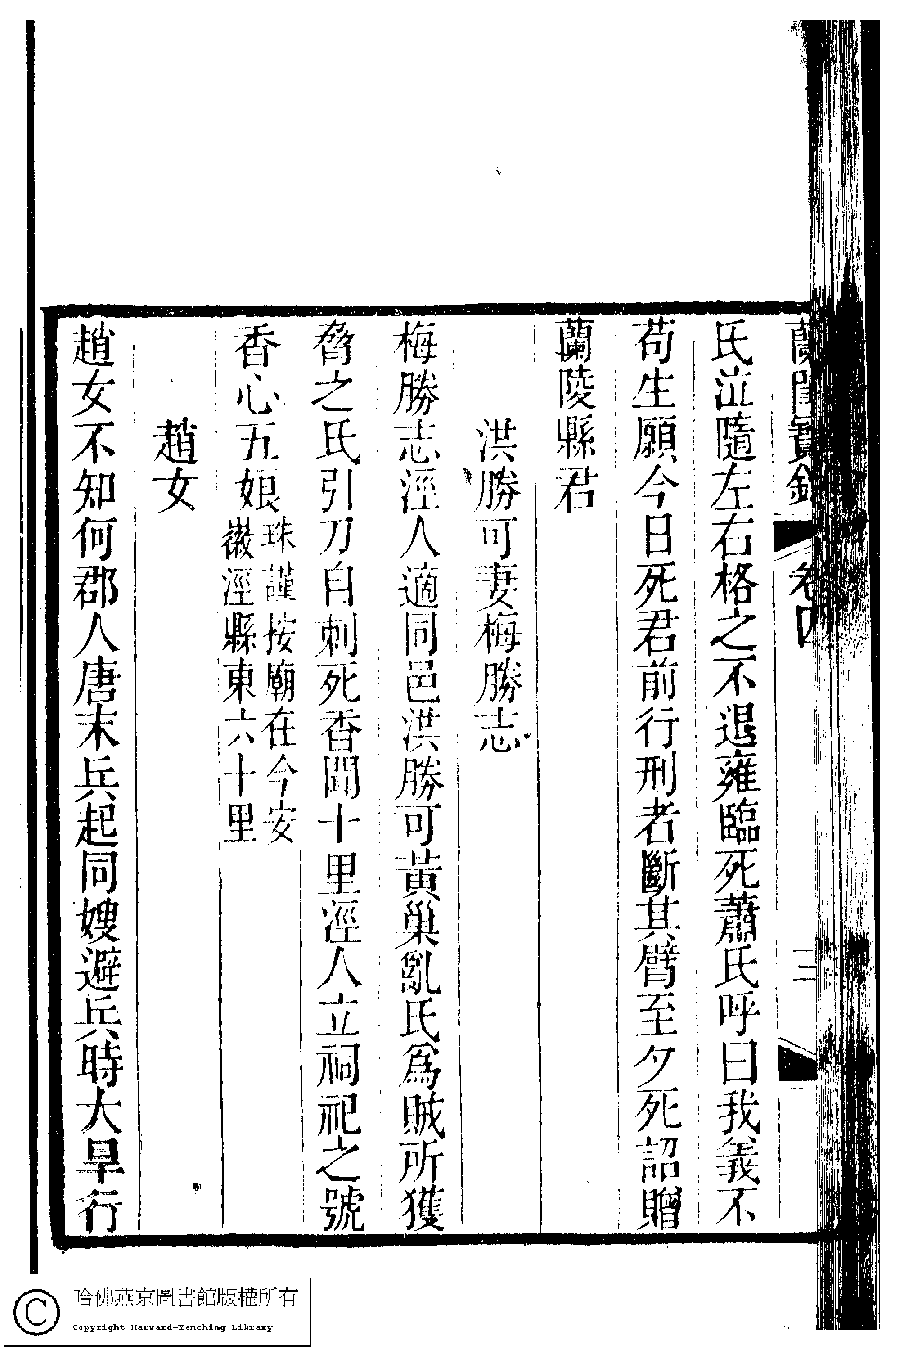 蘭閨寶錄 卷四 三
氏泣隨左右格之不退雍臨死蕭氏呼曰我義不
苟生願今日死君前行刑者斷其臂至夕死詔贈
蘭陵縣君
洪勝可妻梅勝志
梅勝志涇人適同邑洪勝可黃巢亂氏為賊所獲
脅之氏引刀自刺死香聞十里涇人立祠祀之號
香心五娘珠謹按廟在今安
徽涇縣東六十里
趙女
趙女不知何郡人唐末兵起同嫂避兵時大旱行
哈佛燕京圖書館版權所有
Copyright Harvard-Yenching Library